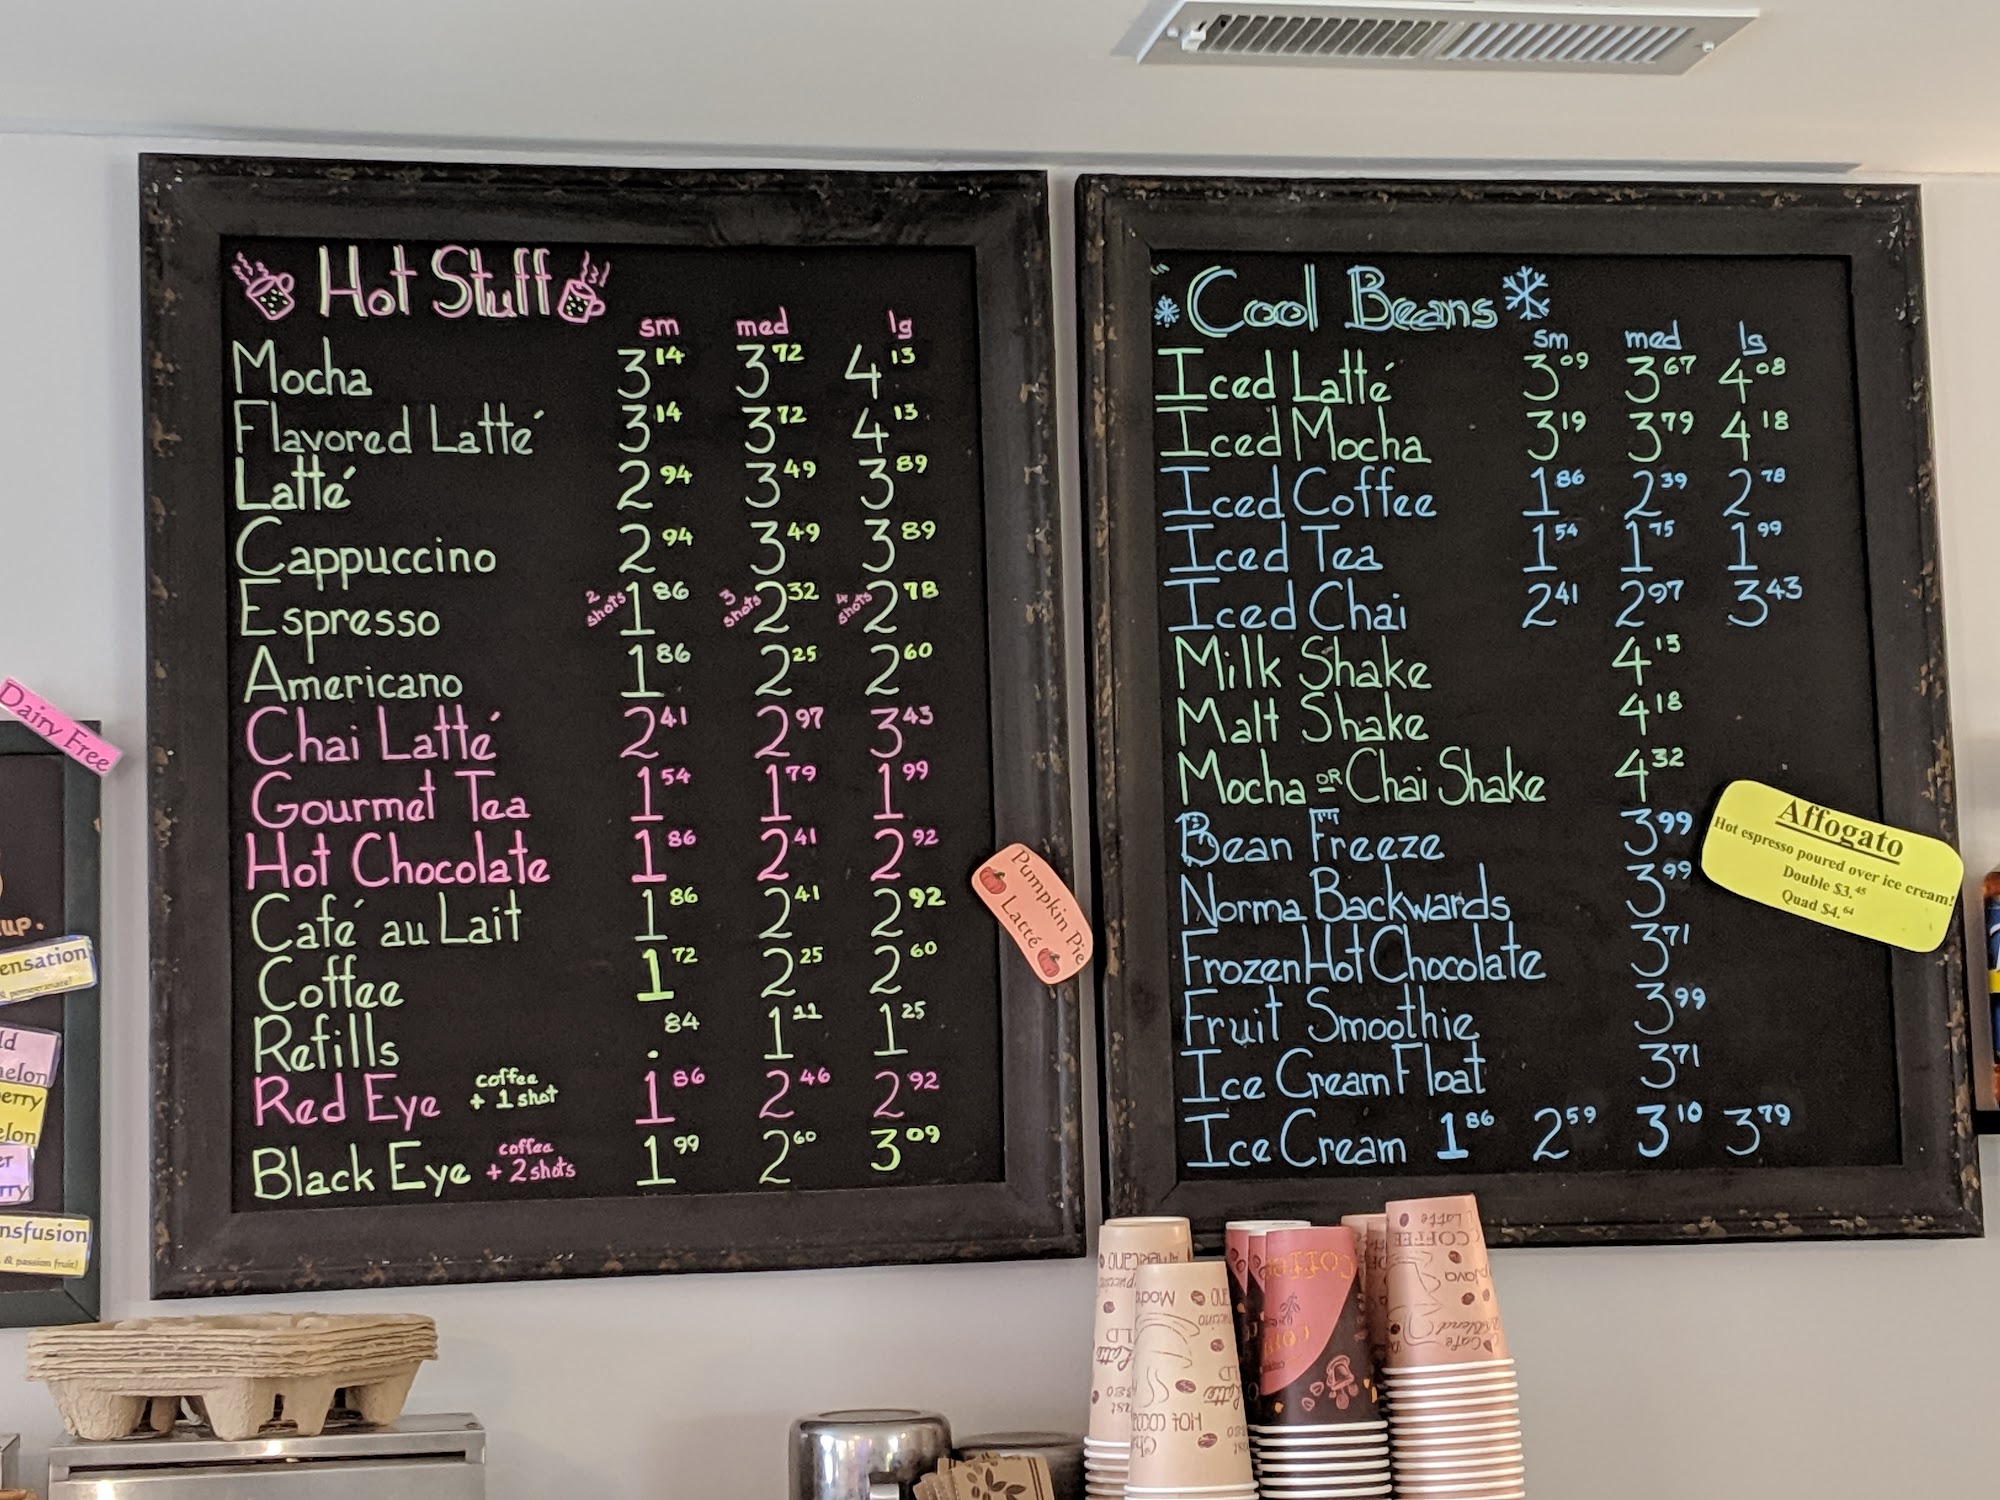 Hot Stuff
sm med lg
Mocha 3 14 3 72 4 13
Flavored Latté 3 14 3 72 4 13
Latté 2 94 3 49 3 89
Cappuccino 2 94 3 49 3 89
Espresso 2 shots 1 86 3 shots 2 32 4 shots 2 78
Americano 1 86 2 25 2 60
Chai Latté 2 41 2 97 3 43
Gourmet Tea 1 54 1 79 1 99
Hot Chocolate 1 86 2 41 2 92
Café au Lait 1 86 2 41 2 92
Coffee 1 72 2 25 2 60
Refills . 84 1 11 1 25
Red Eye coffee + 1 shot 1 86 2 46 2 92
Black Eye coffee + 2 shots 1 99 2 60 3 09
Pumpkin Pie
Latté
Cool Beans
sm med lg
Iced Latté 3 09 3 67 4 08
Iced Mocha 3 19 3 79 4 18
Iced Coffee 1 86 2 39 2 78
Iced Tea 1 54 1 75 1 99
Iced Chai 2 41 2 97 3 43
Milk Shake 4 13
Malt Shake 4 18
Mocha OR Chai Shake 4 32
Bean Freeze 3 99
Norma Backwards 3 99
Frozen Hot Chocolate 3 71
Fruit Smoothie 3 99
Ice Cream Float 3 71
Ice Cream 1 86 2 59 3 10 3 79
Affogato
Hot espresso poured over ice cream!
Double $3.45
Quad $4.64
Dairy Free
& passion fruit!